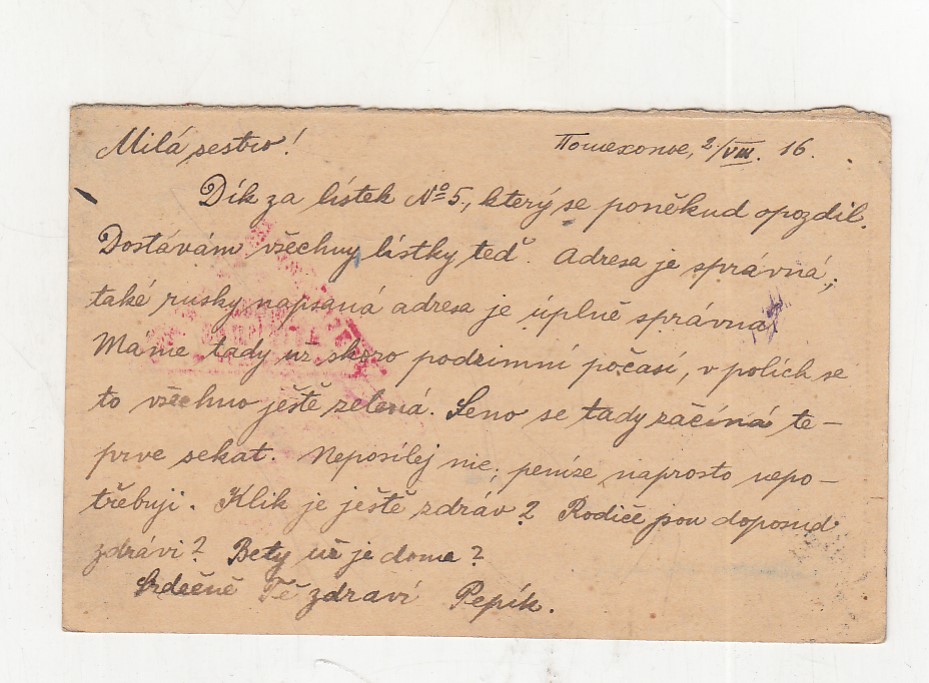 Milá sestro! Пошехонье, 2/VIII. 16.
Dík za lístek № 5., který se poněkud opozdil.
Dostávám všechny lístky teď. Adresa je správná,
také rusky napsaná adresa je úplně správná.
Máme tady už skoro podzimní počasí, v polích se
to všechno ještě zelená. Seno se tady začíná te-
prve sekat. Neposílej nic, peníze naprosto nepo-
třebuji. Klik je ještě zdráv? Rodiče jsou doposud
zdrávi? Bety už je doma?
Srdečně Tě zdraví Pepík.